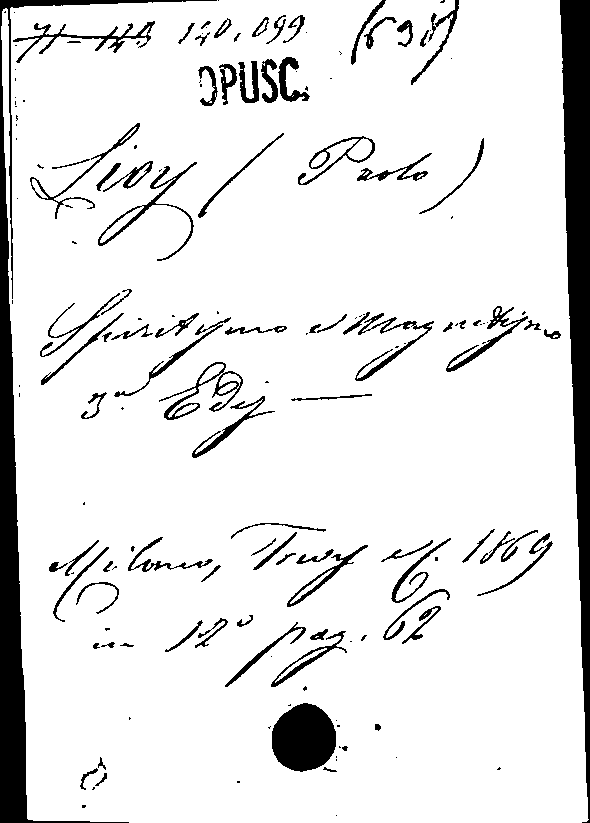 71-143 140.099 (698)
OPUSC.
Lioy (Paolo)
Spiritismo e Magnetismo
3a. Ediz
Milano, Treves e C. 1869
in 12° pag. 62